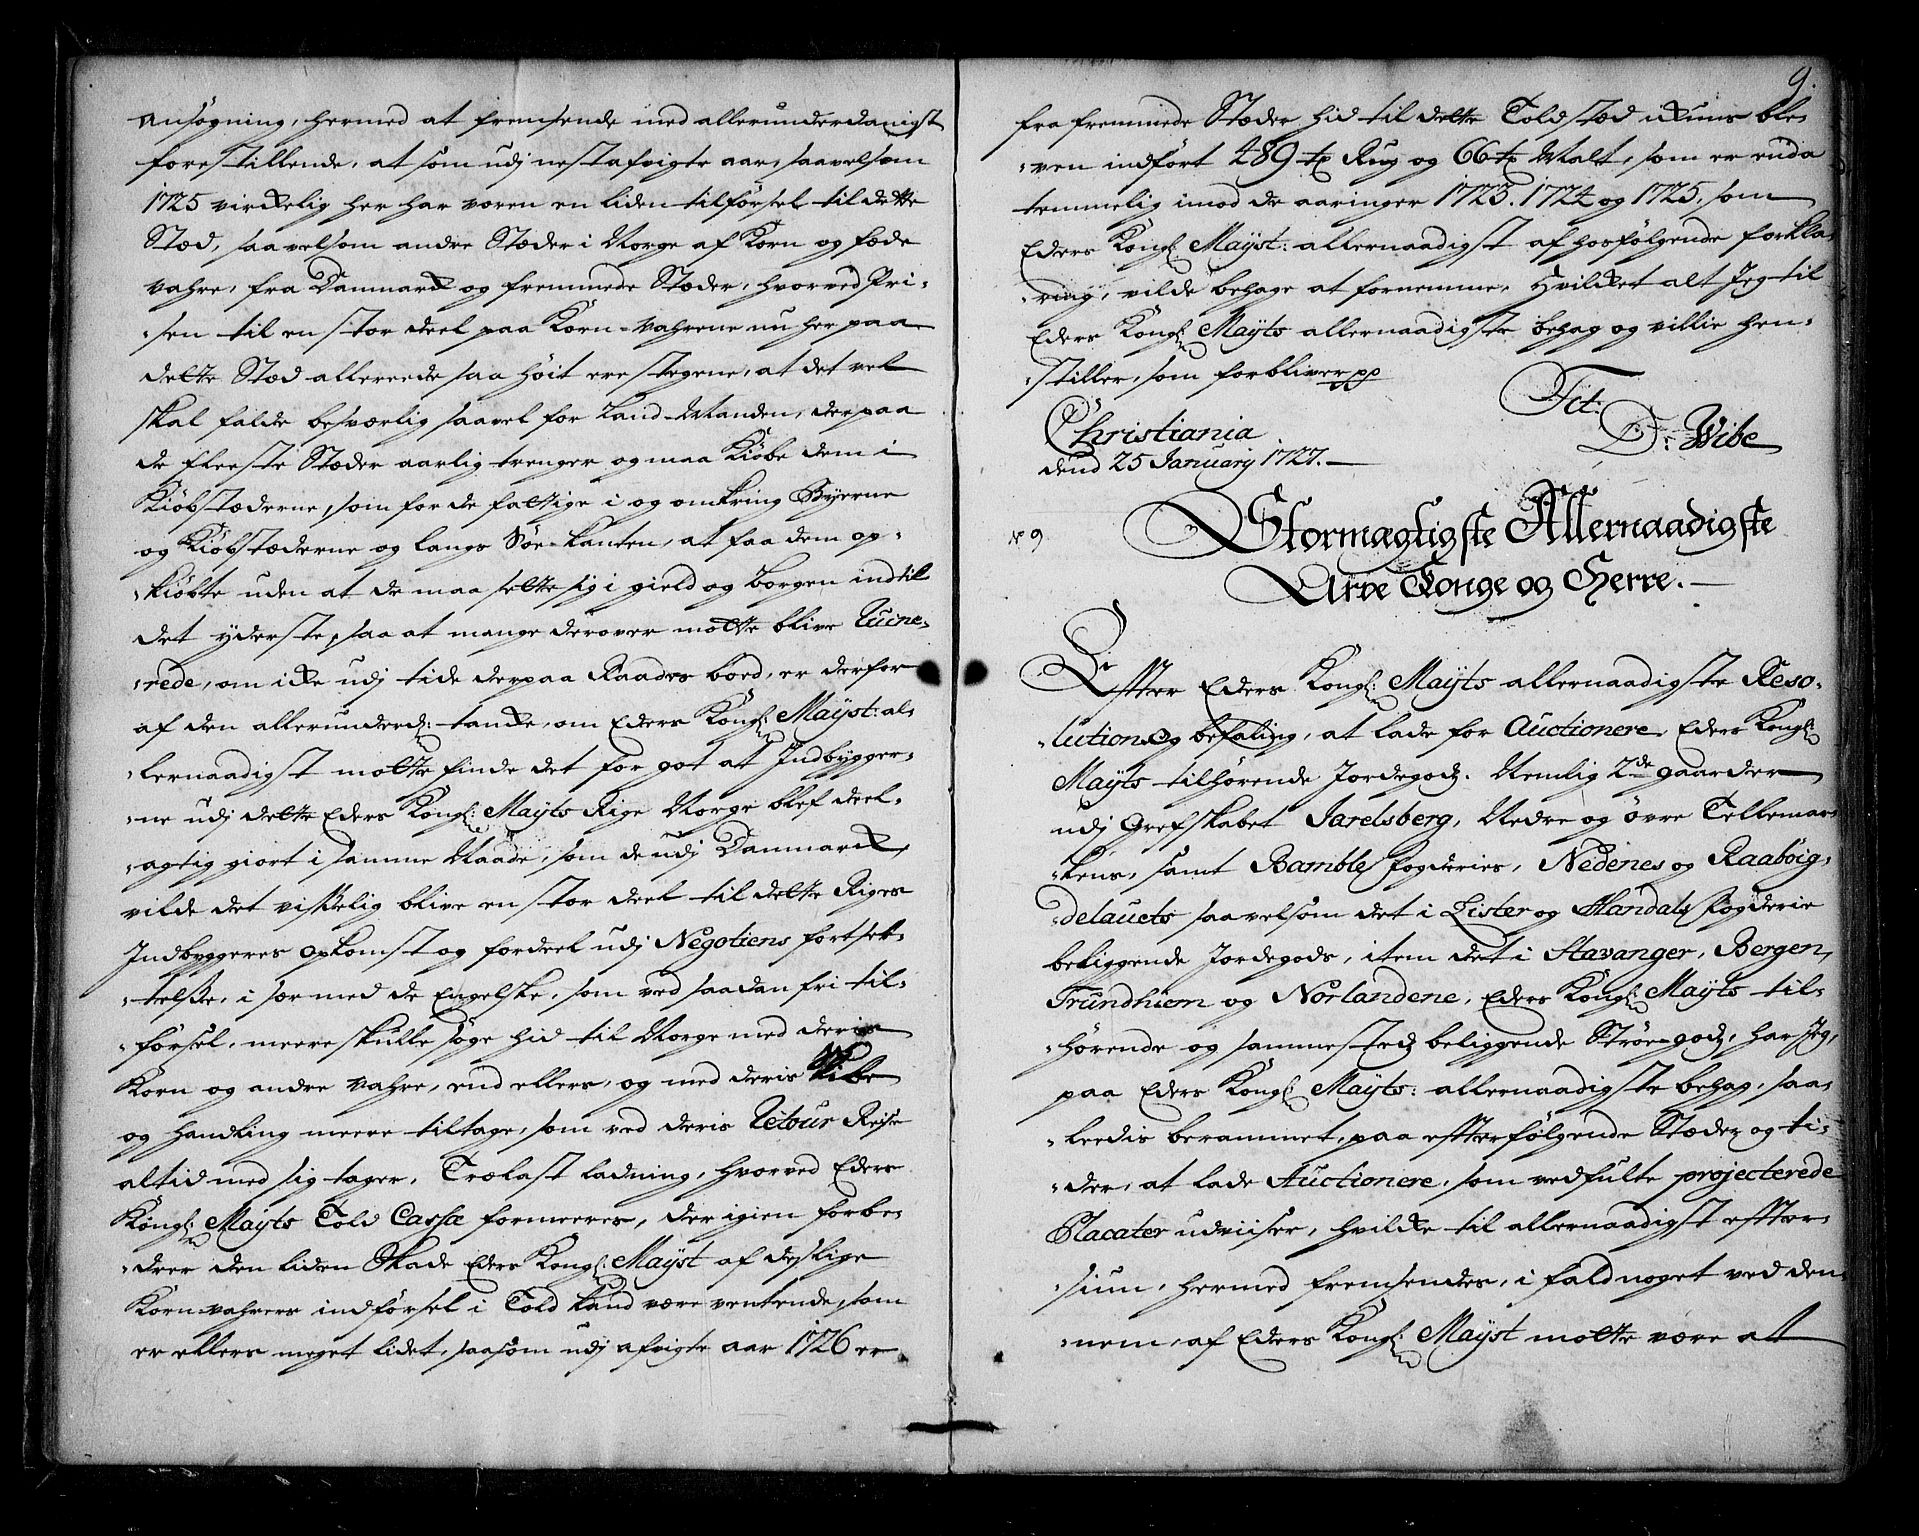 Ansøgning, hermed at fremsende med allerunderdanigst
forestillende, at som udj nestafvigte aar, saavelsom
1725 virkelig her har væren en liden tilførsel til dette
Stæd, saavelsom andre Stæder i Norge af Korn og føde
vahre, fra Danmark og fremmede Stæder, hvorved Pri-
-sen til en stor deel paa Korn-vahrene nu her paa
dette Stæd allereede saa høit ere stegene, at det vel
skal falde besværlig saavel for Land-Manden, der paa
de fleeste Stæder aarlig trenger og maa Kiøbe dem i
Kiøbstæderne, som for de fattige i og omkring Byerne
og Kiøbstæderne og langs Søe-kanten, at faa dem op-
-kiøbte uden at de maa sette sig i gield og borgen indtil
det yderste, saa at mange derover motte blive Ruine-
-rede, om icke udj tide derpaa Raades boed, er derfor
af den allerunderd: tanke, om Eders Kongl: Mayst: al-
-lernaadigst motte finde det for got at Indbygger-
-ne udj dette Eders Kongl: Mayts Rige Norge blef deel-
-agtig giort i samme Naade, som de udj Danmark,
vilde det visselig blive en stor deel til dette Riges
Indbyggeres opkomst og fordeel udj Negotiens fortset-
-telse, i sær med de Engelske, som ved saadan fri til-
-førsel, meere skulle søge hid til Norge med deris
Korn og andre vahre, end ellers, og med deris Kibe
og handling meere tiltage, som ved deris Retour Reise
altid med sig tager, Trælast ladning, hvorved Eders
Kongl: Mayts Told Cassa formeeres, der igien forbe-
-drer den liden Skade Eders Kongl: Mayst af deslige
Korn-vahrers indførsel i Told kand være ventende, som
er ellers meget lidet, saasom udj afvigte aar 1726 er
9.
fra fremmede Stæder hid til dette Toldstæd ikuns ble-
-ven indført 489 tr Rug og 66 tr Malt, som er enda
temmelig imod de aaringer 1723. 1724 og 1725, som
Eders Kongl: Mayst: allernaadigst af hosfølgende forkla-
-ring, vilde behage at fornemme, Hvilket alt Jeg til
Eders Kongl: Mayts allernaadigste behag og villie hen-
-stiller, som forbliver pp
Fct:
Christiania D: Wibe
dend 25 January 1727.
No 9
Stormægtigste Allernaadigste
Arve Konge og Herre.
Efter Eders Kongl: Mayts allernaadigste Reso-
-lution og befaling, at lade for Auctionere, Eders Kongl:
Mayts tilhørende Jordegodz. Nemlig 2de gaarder
udj Grefskabet Jarelsberg, Nedre og øvre Tellemar-
-kens, samt Bamble fogderies, Nedenes og Raabøig-
-delaucts saavelsom det i Lister og Mandals fogderie
beliggende Jordegods, item det i Stavanger, Bergen,
Trundhiem og Norlandene, Eders Kongl: Mayts til-
-hørende og sammesteds beliggende Strøe-godz, har Jeg,
paa Eders Kongl: Mayts: allernaadigste behag, saa-
-leedis berammet, paa efterfølgende Stæder og ti-
-der, at lade Auctionere, som vedfulte projecterede
Placater udviiser, hvilke til allernaadigst efter-
-siun, hermed fremsendes, i fald noget ved den-
-nem, af Eders Kongl: Mayst motte være at